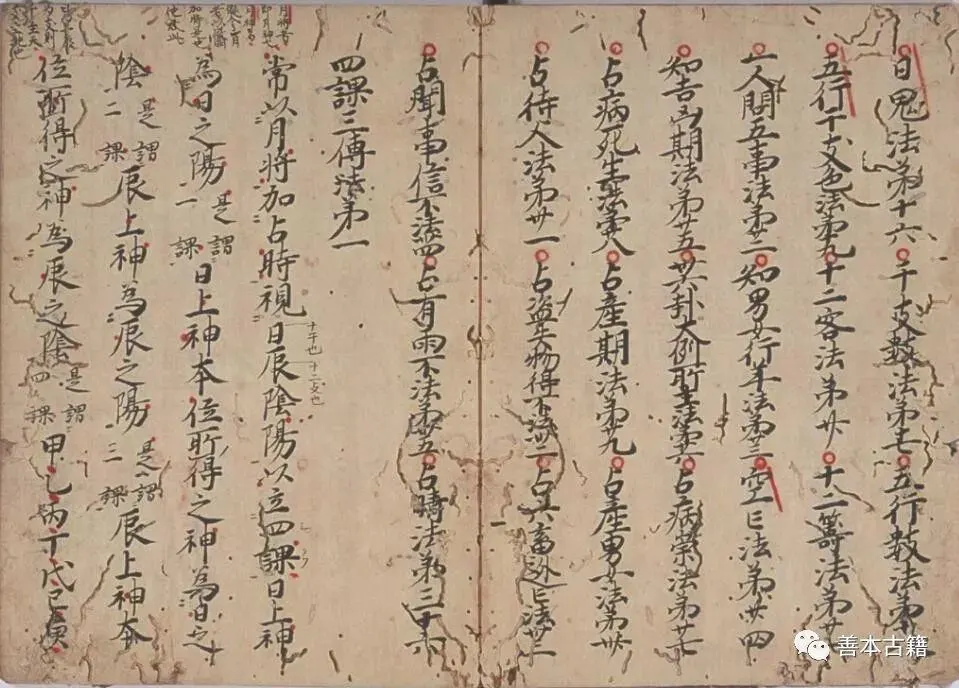 日鬼法第十六 干支数法第十七 五行数法第十八
五行干支色法第十九 十二客法第廿 十二籌法第廿一
一人問五事法第廿二 知男女行年法第廿三 空亡法第廿四
知吉凶期法第廿五 卅六卦大例所主法第廿六 占病祟法第廿七
占病死生法第廿八 占産期法第廿九 占産男女法第卅
占待人法第卅一 占盗失物得不法卅二 占六畜逃亡法卅三
占聞事信不法卅四 占有雨不法第卅五 占晴法第三十六
四課三傳法第一
常以月将加占時視日辰陰陽以立四課日上神
十干也 十二支也
為日之陽是謂一課日上神本位所得之神為日之
陰是謂二課辰上神為辰之陽是謂三課辰上神本
位所得之神為辰之陰是謂四課甲乙丙丁戊己庚
善本古籍